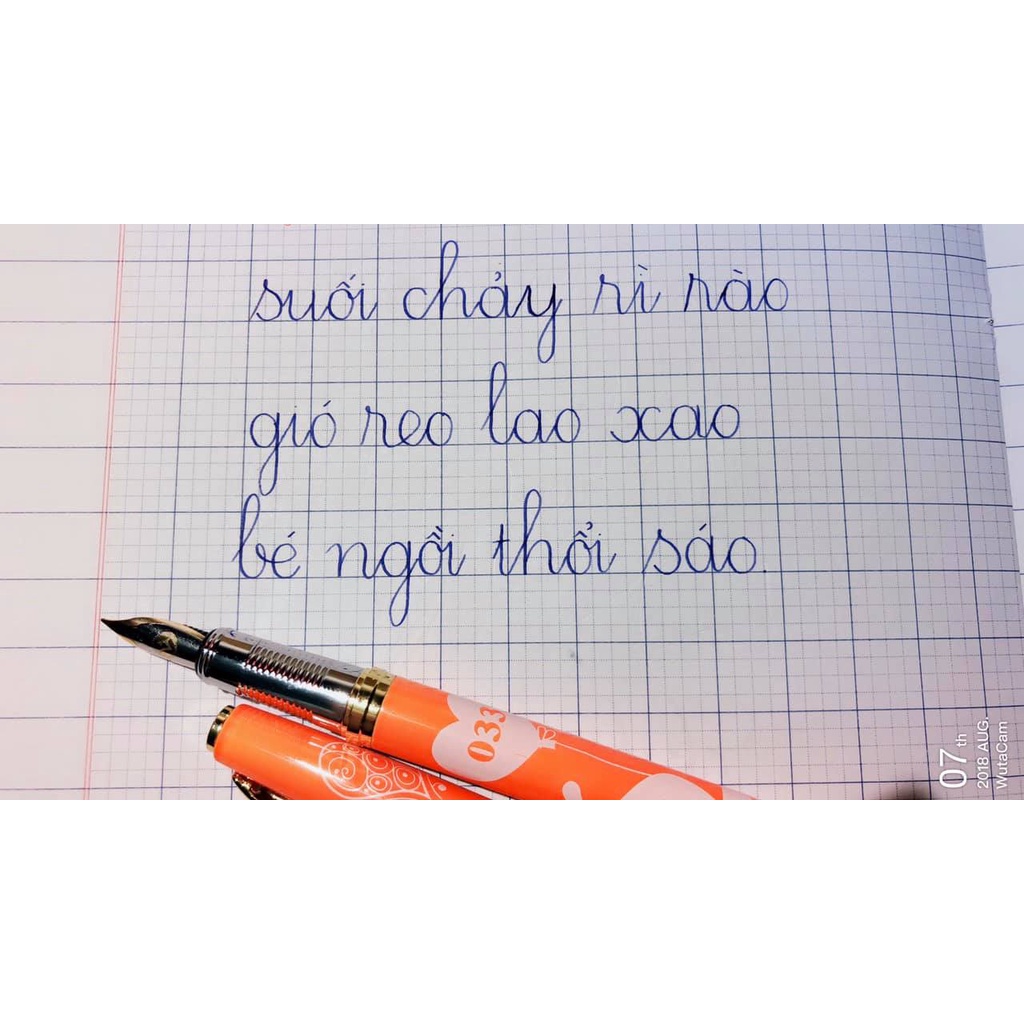 suối chảy rì rào
gió reo lao xao
bé ngồi thổi sáo.
033
07th
2018 AUG.
WutaCam